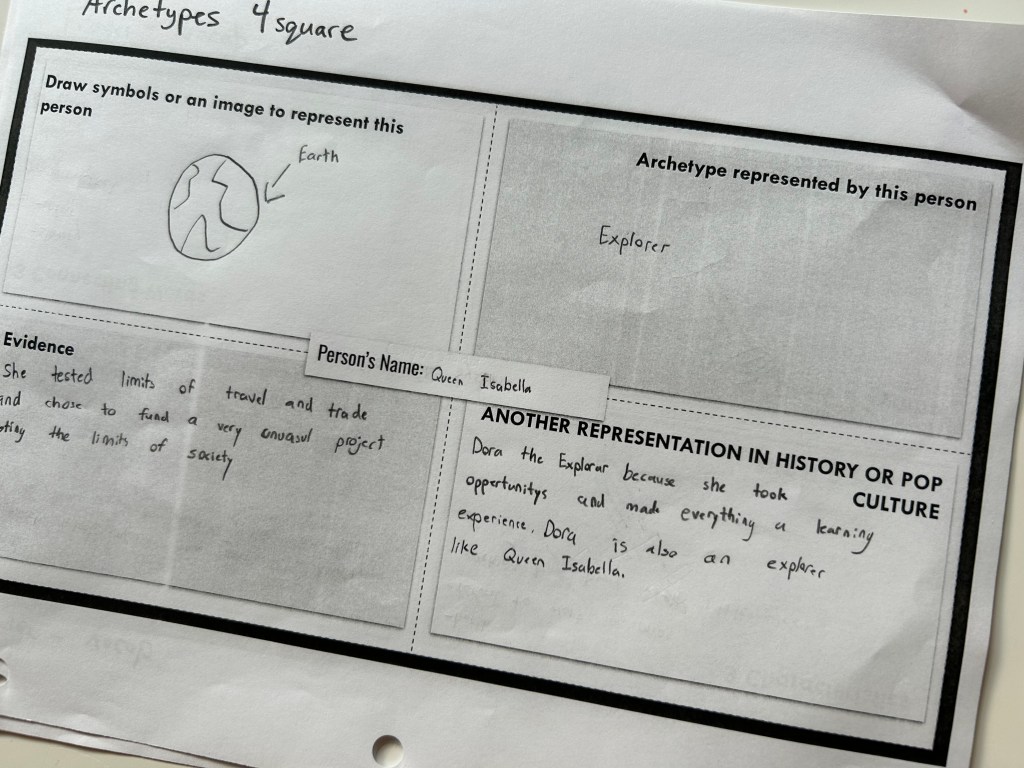 Archetypes 4 square
Draw symbols or an image to represent this
person
Earth
Archetype represented by this person
Explorer
Person's Name: Queen Isabella
Evidence
She tested limits of travel and trade
and chose to fund a very unuasul project
the limits of society
ANOTHER REPRESENTATION IN HISTORY OR POP
CULTURE
Dora the Explorar because she took
oppertunitys and made everything a learning
experience. Dora is also an explorer
like Queen Isabella.